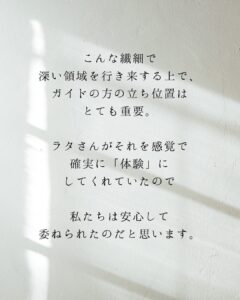 こんな繊細で
深い領域を行き来する上で、
ガイドの方の立ち位置は
とても重要。
ラタさんがそれを感覚で
確実に「体験」に
してくれていたので
私たちは安心して
委ねられたのだと思います。